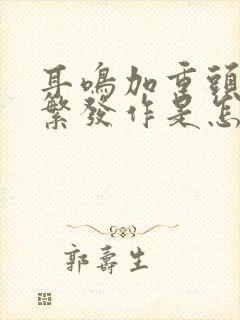 耳鳴加重頭
繁發作是怎
郭壽生